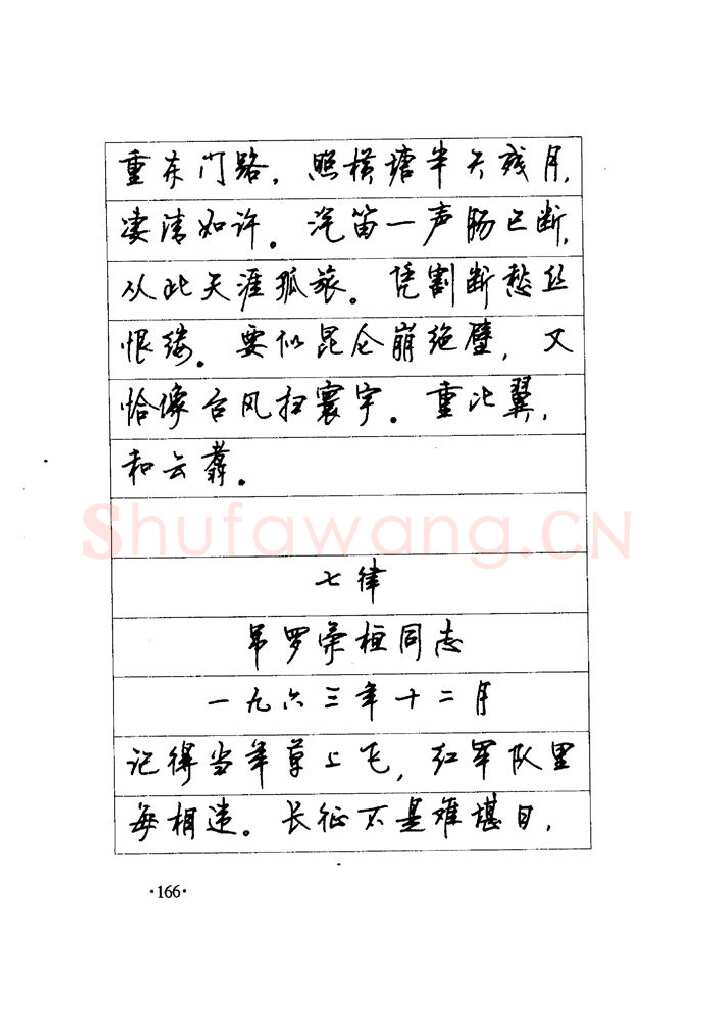 重东门路，照横塘半天残月，
凄清如许。汽笛一声肠已断，
从此天涯孤旅。凭割断愁丝
恨缕。要似昆仑崩绝壁，又
恰像台风扫寰宇。重比翼，
和云翥。
Shufawang.CN
七律
吊罗荣桓同志
一九六三年十二月
记得当年草上飞，红军队里
每相违。长征不是难堪日，
·166·